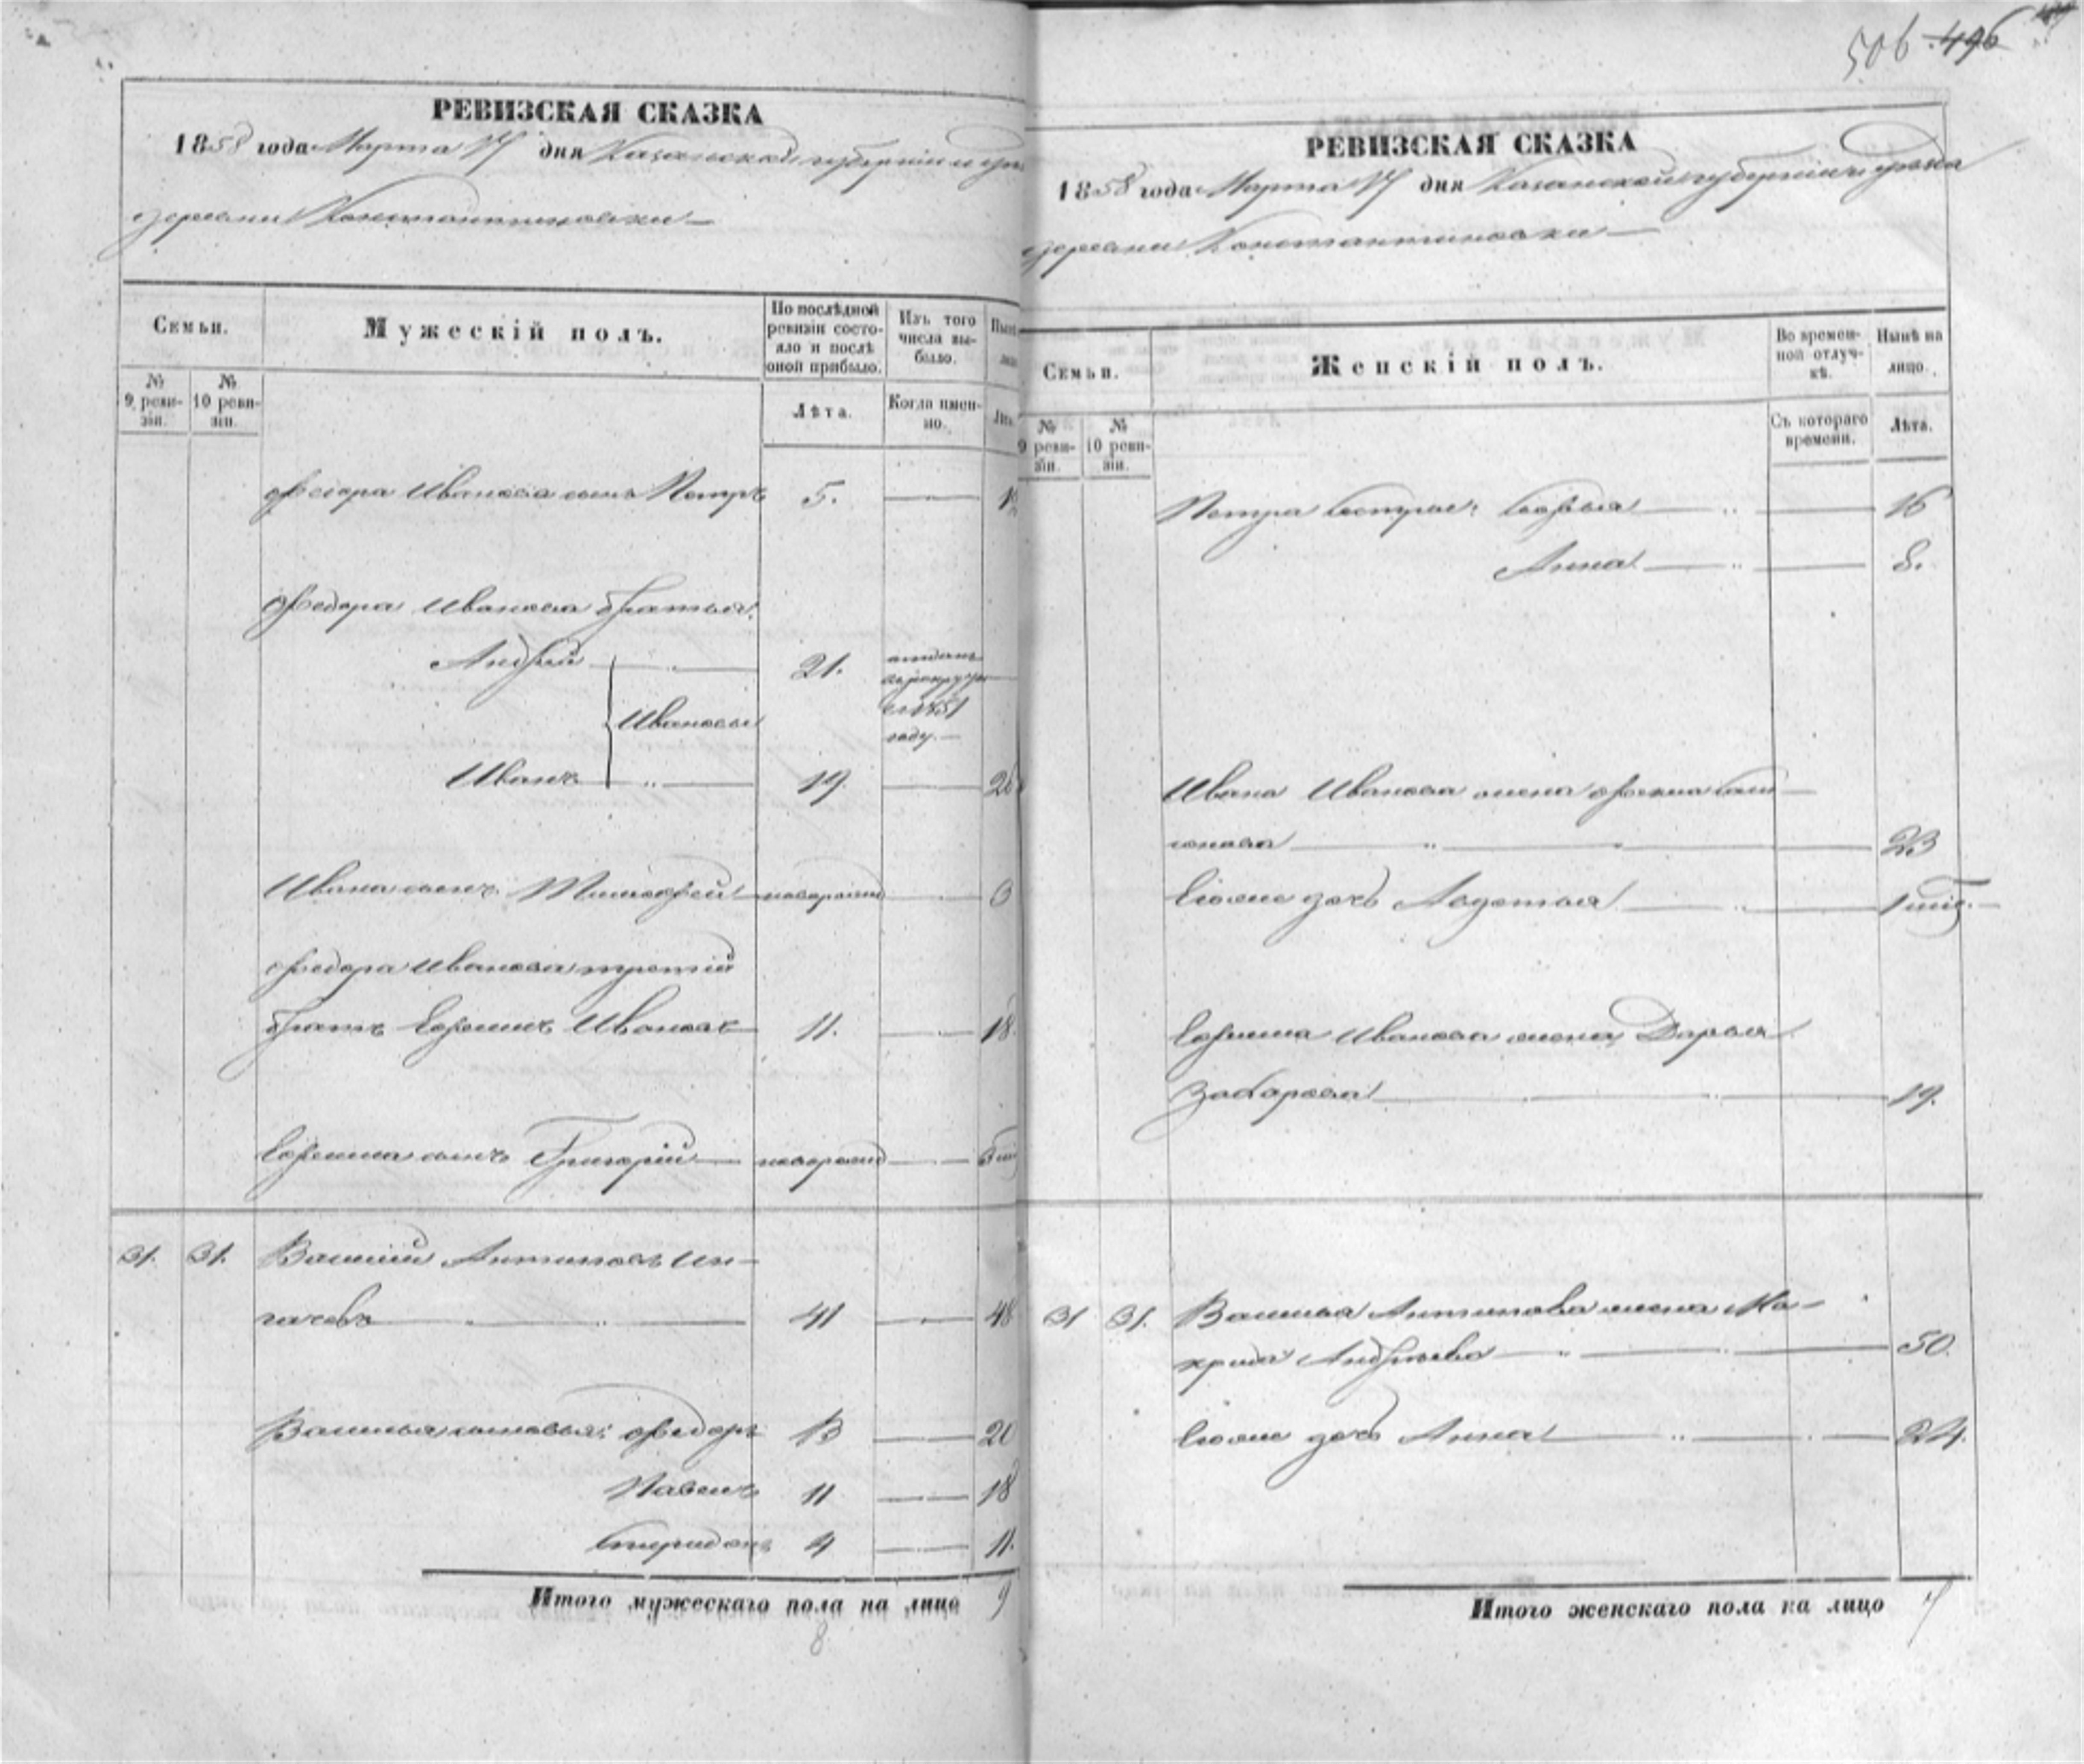 506 496
РЕВИЗСКАЯ СКАЗКА
1858 года Марта 17 дня Казанской губернии и уез
деревни Константиновки —
Семьи.
Мужескій полъ.
По послѣдной ревизіи состояло и послѣ оной прибыло.
Изъ того числа выбыло.
№ 9 ревизіи.
№ 10 ревизіи.
Лѣта.
Когда именно.
Лѣт.
Федора Иванова сынъ Петръ 5.
Федора Иванова братья:
Андрей 21. отданъ
въ рекруты
въ 1851
Ивановы году.
Иванъ 19. 26
Ивана сынъ Тимофей новорожд
Федора Иванова третій
братъ Ефимъ Ивановъ 11. 18.
Ефима сынъ Григорій новорожд
31. 31. Василій Антиповъ
41 48
Василья сыновья: Федоръ 13 20
Павелъ 11 18
Спиридонъ 4 11.
Итого мужескаго пола на лицо 9
8
РЕВИЗСКАЯ СКАЗКА
1858 года Марта 17 дня Казанской губерніи и уезда
деревни Константиновки —
Семьи.
Женскій полъ.
Во временной отлучкѣ.
Нынѣ на лицо.
№ 9 ревизіи.
№ 10 ревизіи.
Съ котораго времени.
Лѣта.
Петра сестры: Софья 16
Анна 8.
Ивана Иванова жена
23
Евоже дочь Авдотья 1
Ефима Иванова жена Дарья
Захарова 19.
31 31. Василья Антипова жена Ма-
крида Андреева 50.
Евоже дочь Анна 24.
Итого женскаго пола на лицо 7